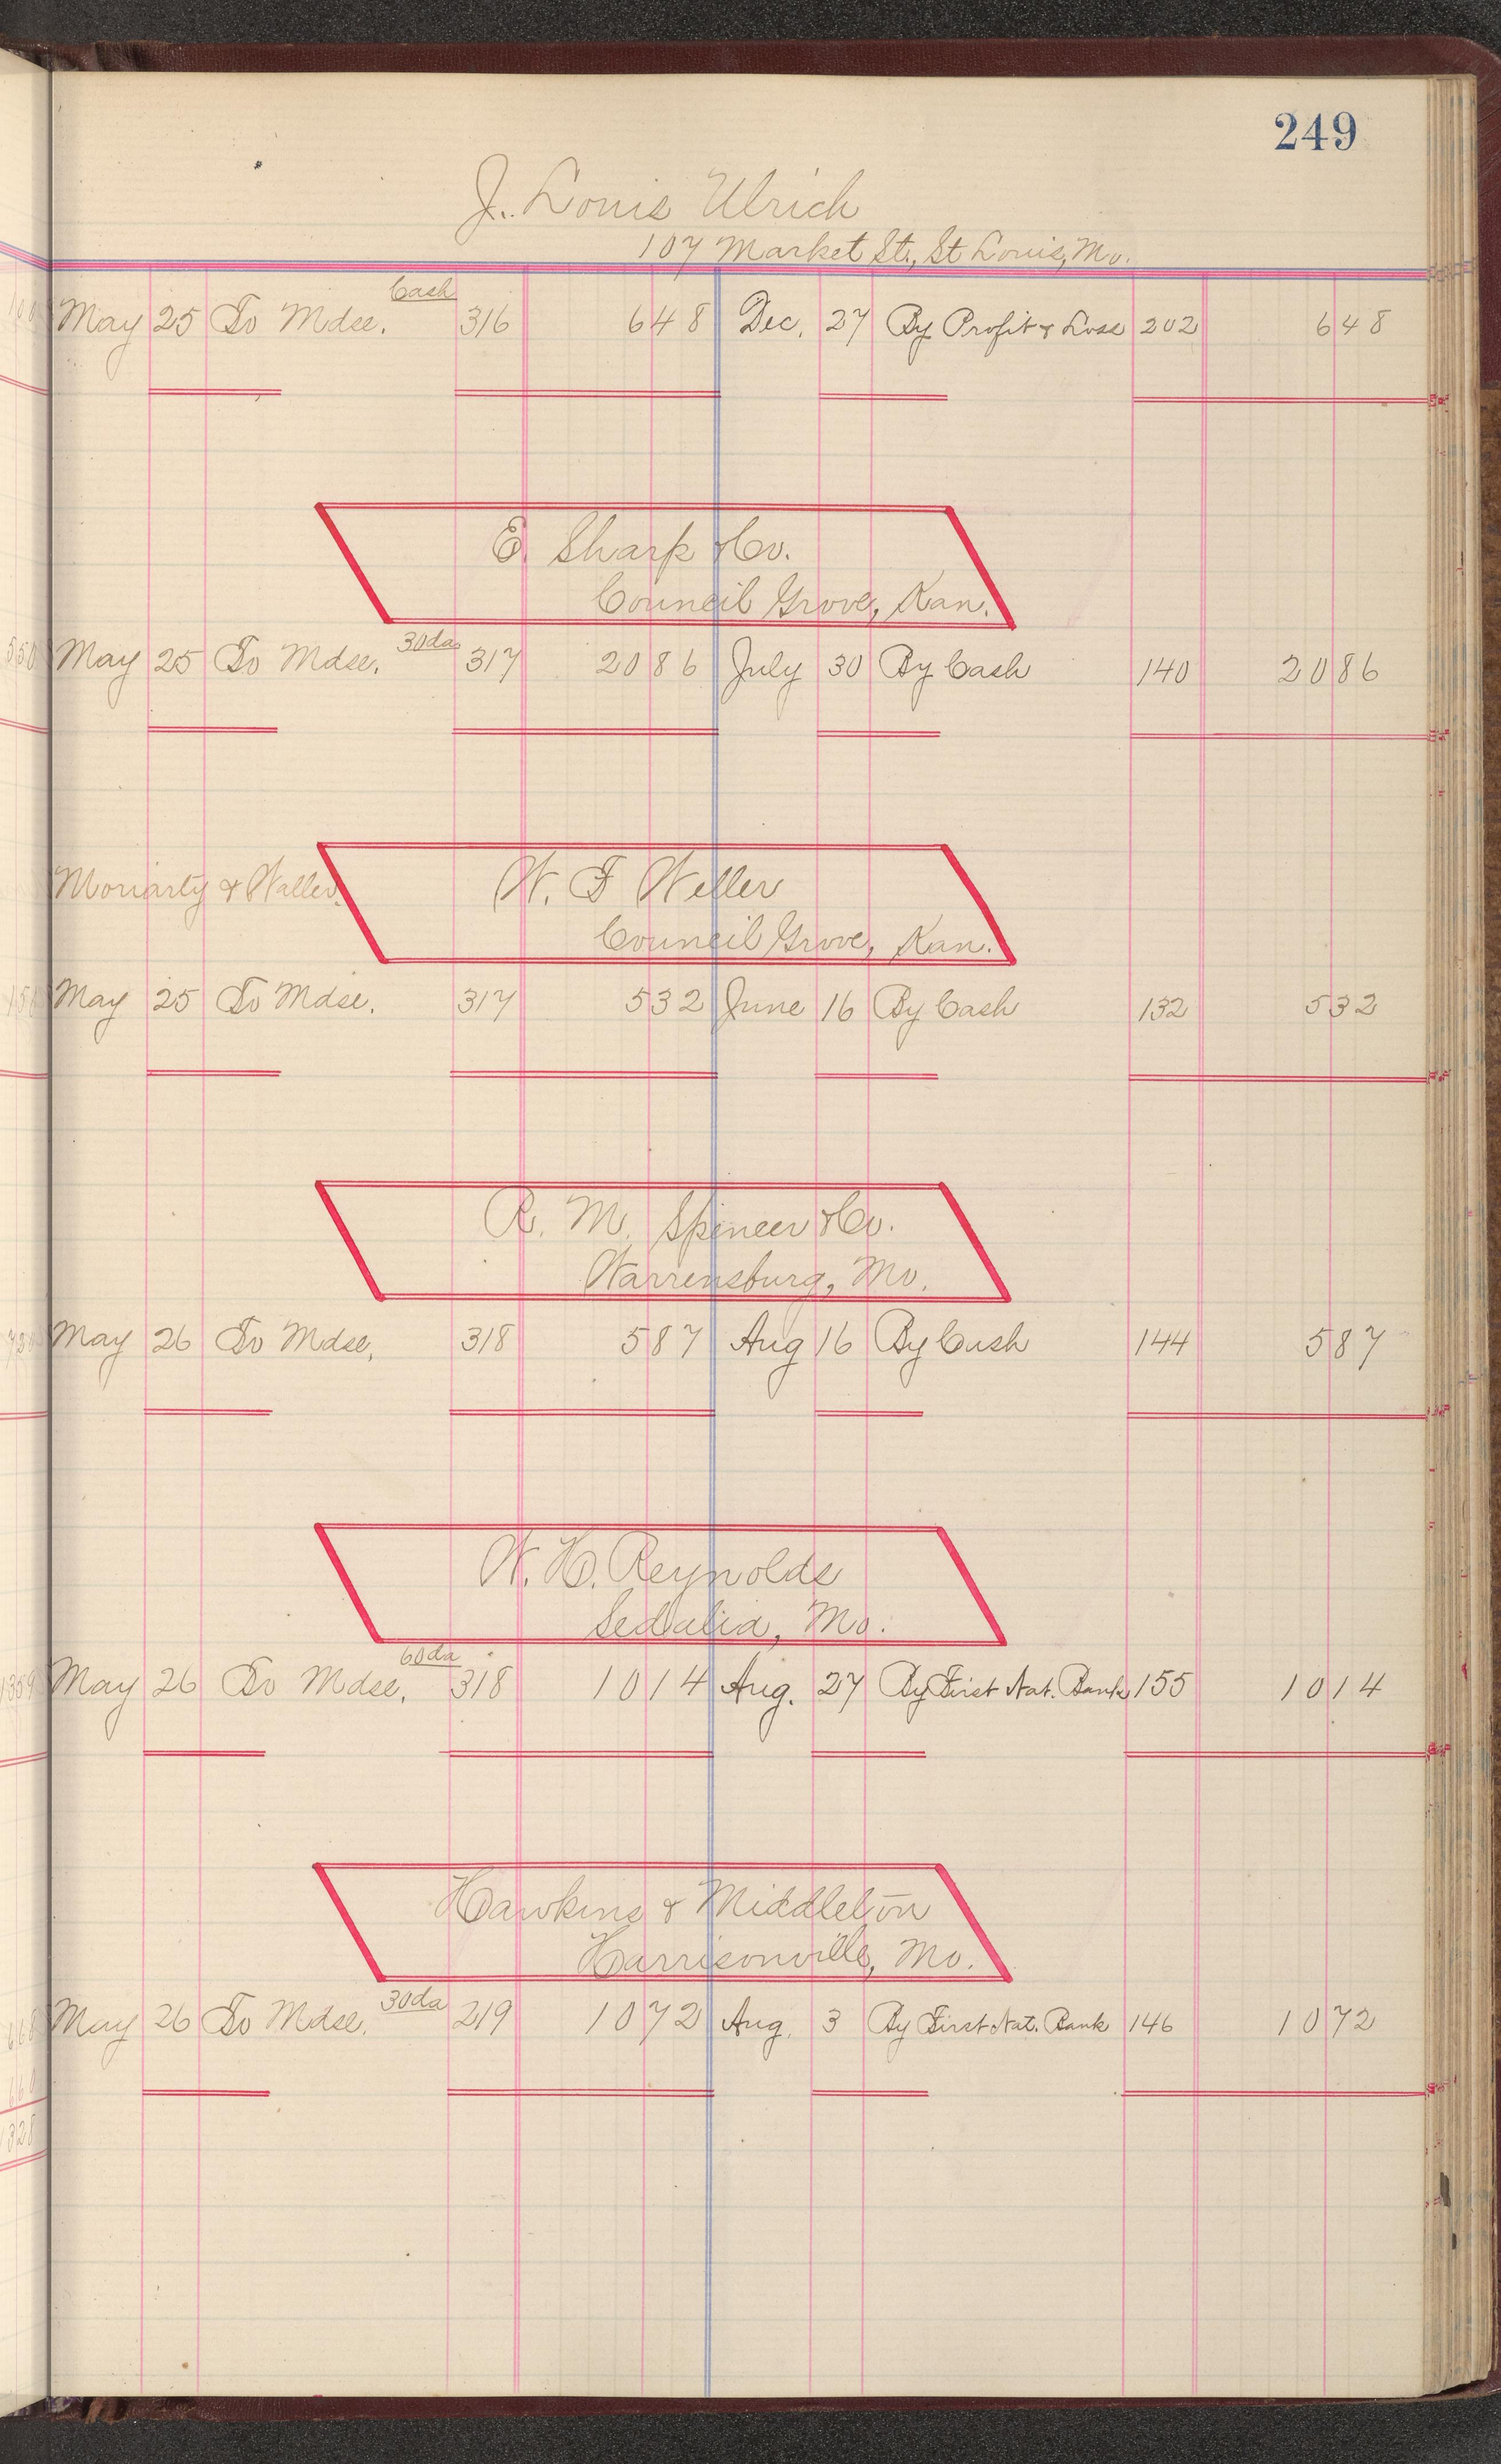 249
J. Louis Ulrich
107 Market St., St Louis, Mo.
Cash
May 25 To Mdse. 316 648 Dec. 27 By Profit & Loss 202 648
E. Sharp & Co.
Council Grove, Kan.
30da
May 25 To Mdse. 317 2086 July 30 By Cash 140 2086
Moriarty & Waller. W. F Weller
Council Grove, Kan.
May 25 To Mdse. 317 532 June 16 By Cash 132 532
R. M. Spencer & Co.
Warrensburg, Mo.
May 26 To Mdse. 318 587 Aug 16 By Cash 144 587
W. H. Reynolds
Sedalia, Mo.
60da
May 26 To Mdse. 318 1014 Aug. 27 By First Nat. Bank 155 1014
Hawkins & Middleton
Harrisonville, Mo.
30da
May 26 To Mdse. 219 1072 Aug. 3 By First Nat. Bank 146 1072